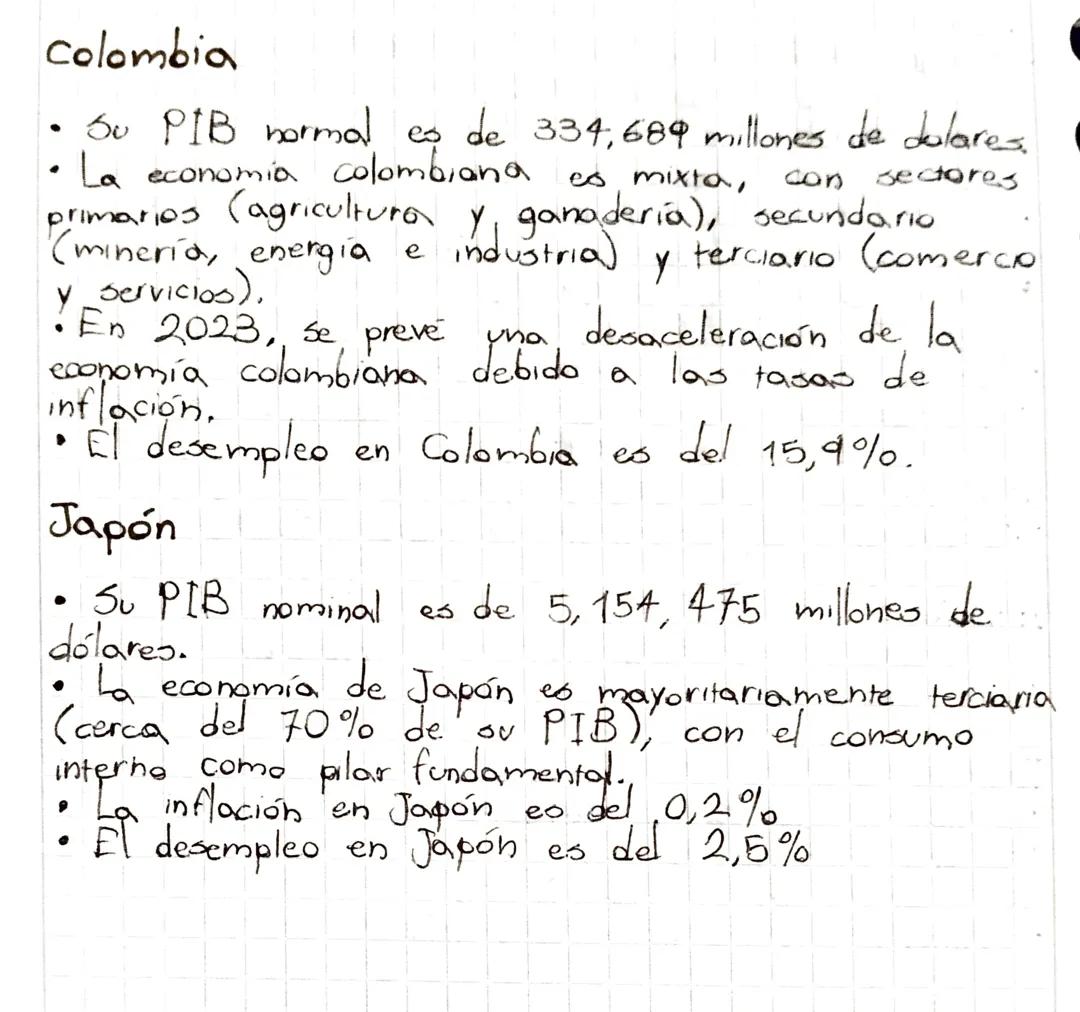 Colombia
• Su PIB normal es de 334,689 millones de dolares.
• La economía colombiana es mixta, con sectores
primarios (agricultura y ganadería), secundario
(minería, energía e industria) y terciario (comercio
y servicios).
• En 2023, se prevé una desaceleración de la
economía colombiana debido a las tasas de
inflación.
• El desempleo en Colombia es del 15,9%.
Japón
• Su PIB nominal es de 5,154,475 millones de
dólares.
• La economía de Japón es mayoritariamente terciaria
(cerca del 70% de su PIB), con el consumo
interno como pilar fundamental.
• La inflación en Japón es del 0,2%
• El desempleo en Japón es del 2,5%